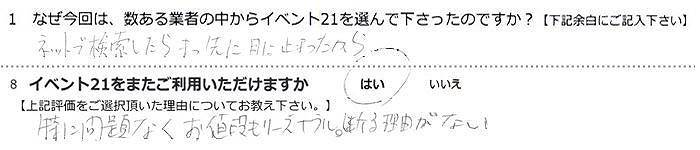 1 なぜ今回は、数ある業者の中からイベント21を選んで下さったのですか？【下記余白にご記入下さい】
ネットで検索したらまっ先に目に止まったから
8 イベント21をまたご利用いただけますか はい いいえ
【上記評価をご選択頂いた理由についてお教え下さい。】
特に問題なくお値段もリーズナブル。断る理由がない